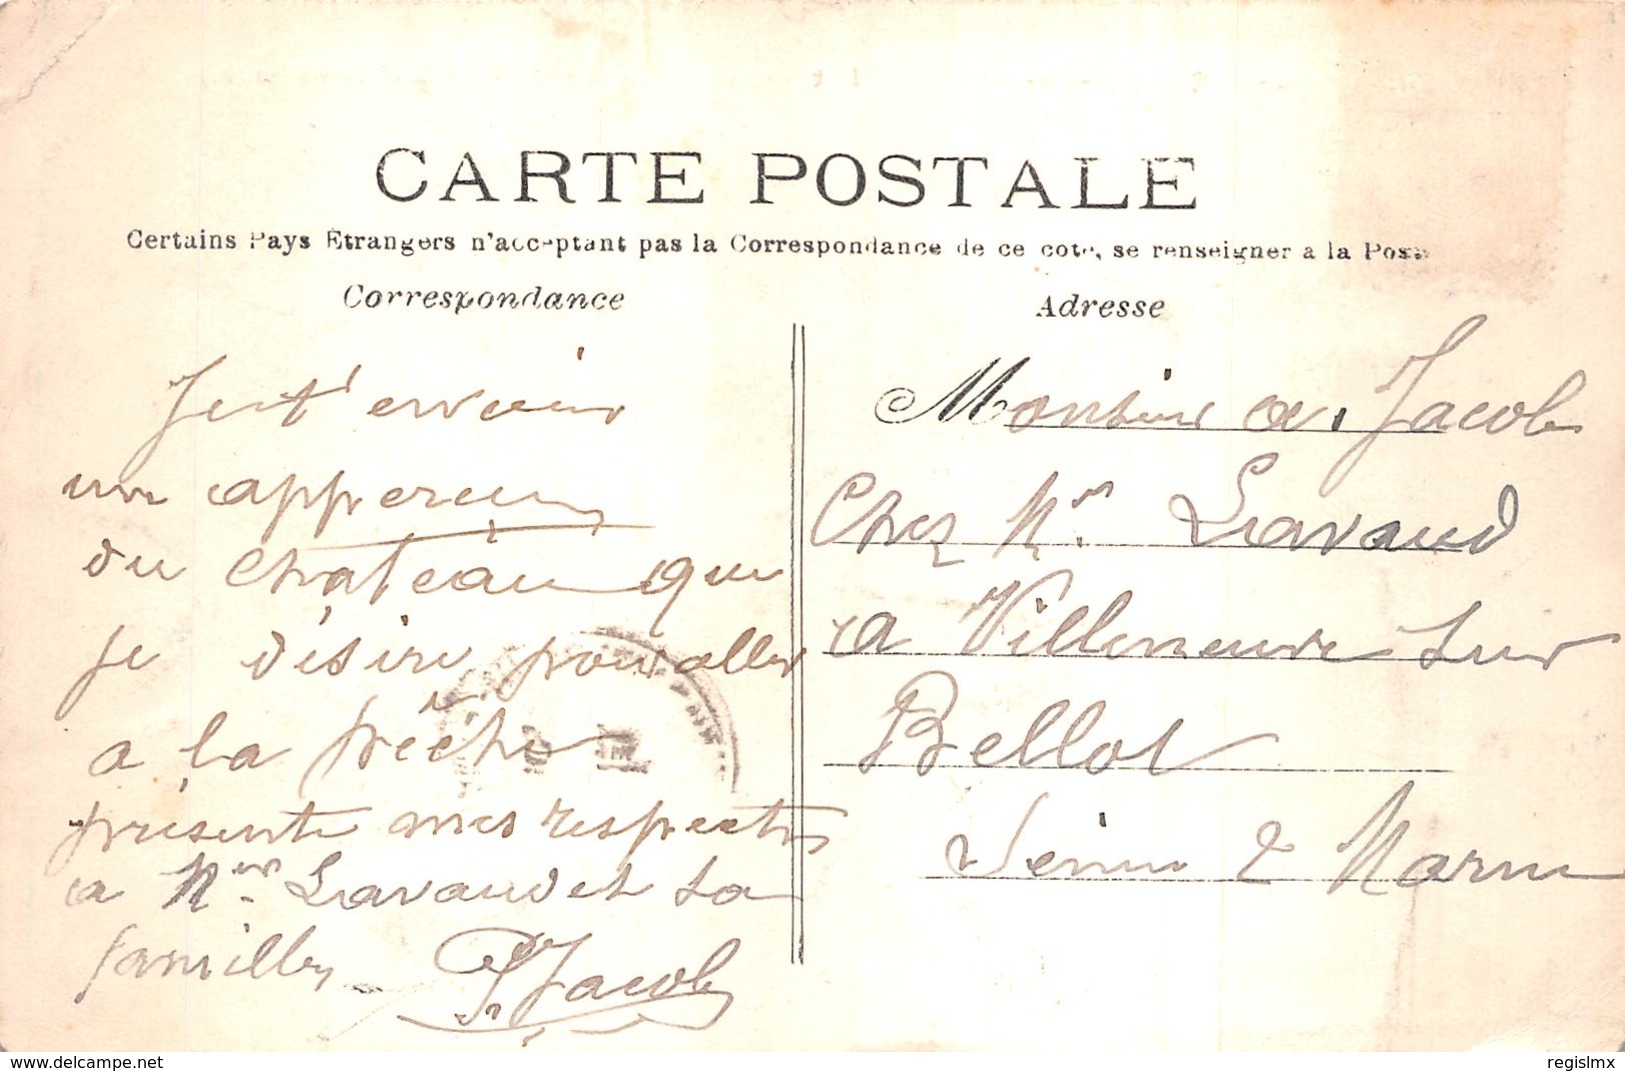 CARTE POSTALE
Certains Pays Étrangers n'acceptant pas la Correspondance de ce coté, se renseigner à la Poste
Correspondance
Je t'envoie
un apperçu
du Château que
je désire pour aller
a la pêche
présente mes respects
a Mr Lavaud et sa
famille
P. Jacob
Adresse
Monsieur a. Jacob
Chez Mr. Lavaud
a Villeneuve sur
Bellot
Seine & Marne
www.delcampe.net
regislmx